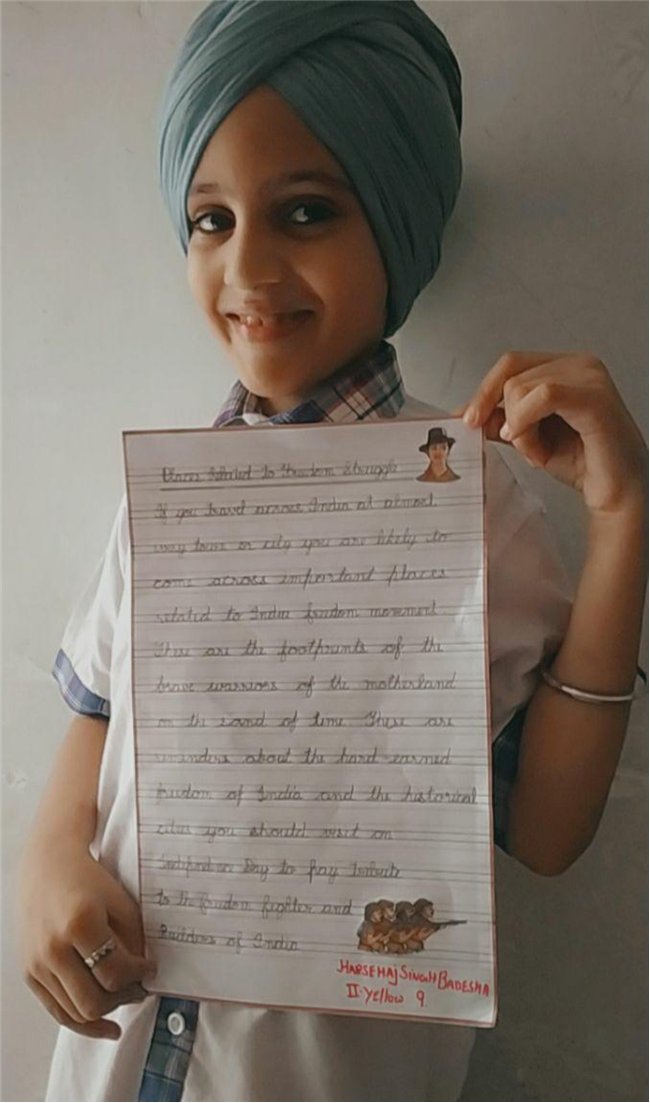 Places Related to Freedom Struggle
If you travel across India at almost
evry town or city you are likely to
come across important places
related to India freedom movment
These are the footprints of the
brave warriors of the motherland
on the sand of time These are
reminders about the hard-earned
freedom of India and the historical
cities you should visit on
Day to pay tribute
to the freedom fighter and
Builders of India
HARSEHAJ SINGH BADESHA
II-Yellow 9